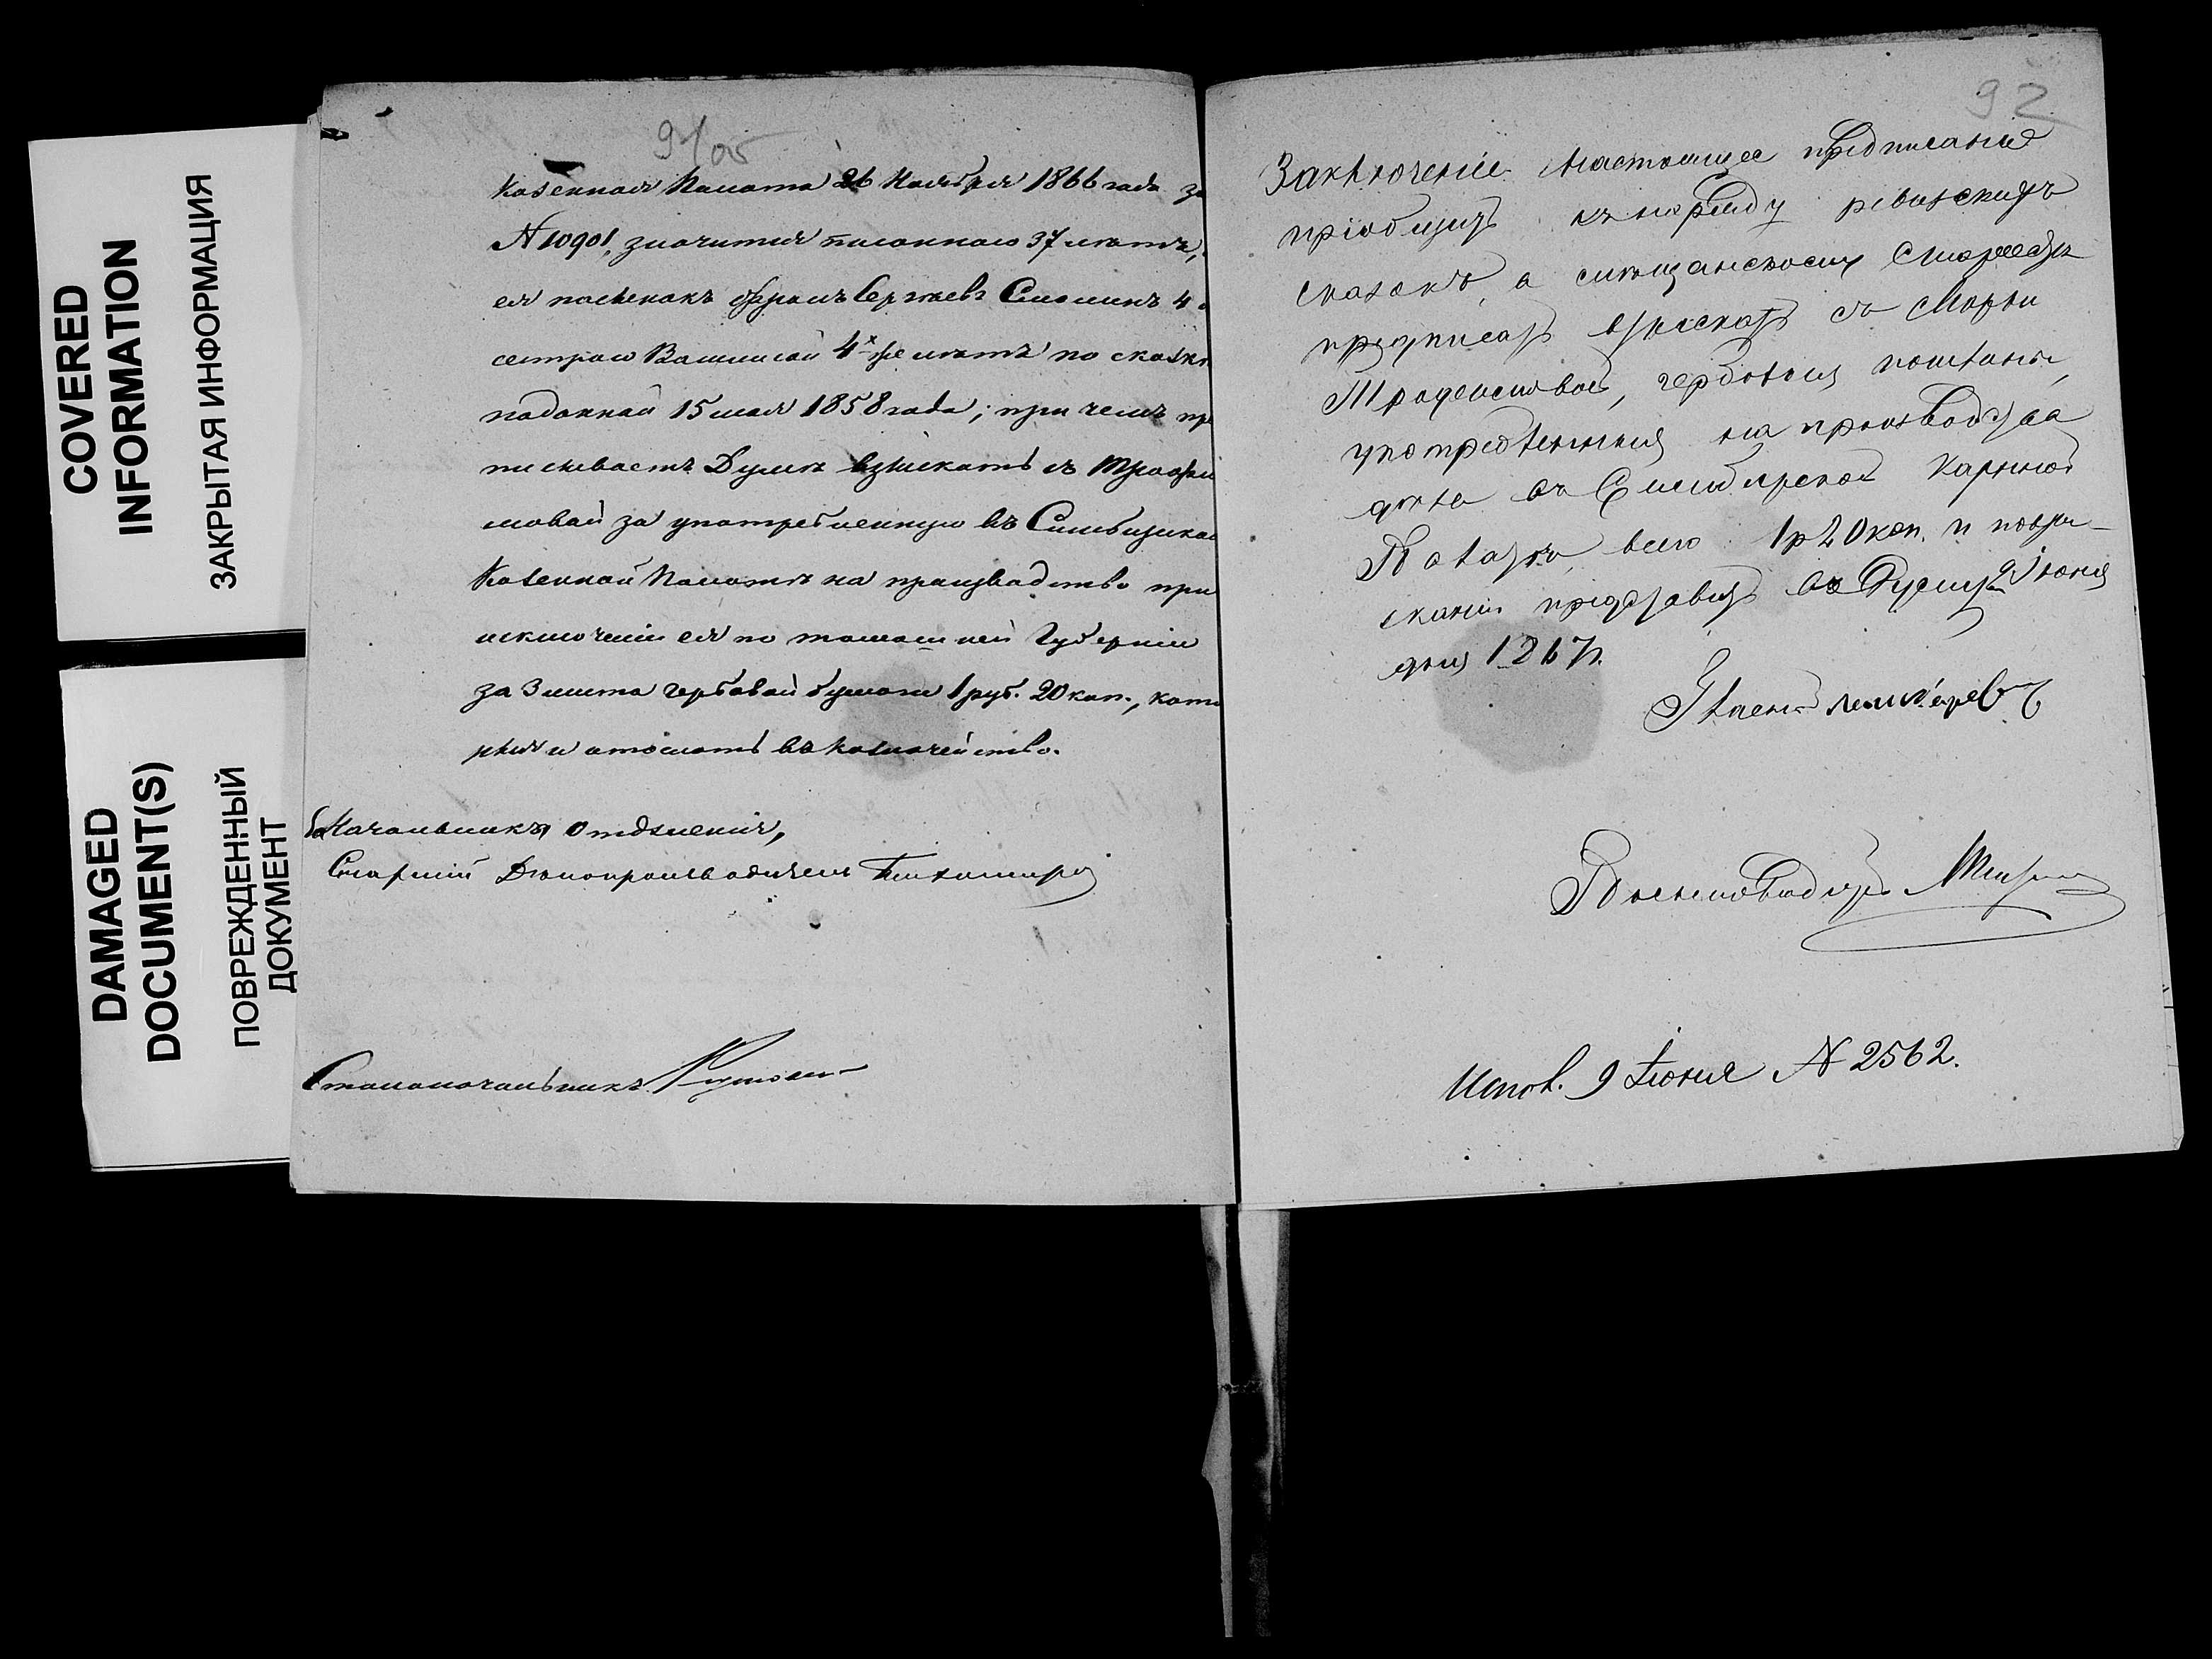 COVERED
INFORMATION
ЗАКРЫТАЯ ИНФОРМАЦИЯ
DAMAGED
DOCUMENT(S)
ПОВРЕЖДЕННЫЙ
ДОКУМЕНТ
91об
Казенная Палата 26 Ноября 1866 года за
№ 10901, значится писанною 37 лѣтъ,
ея пасынокъ Сергѣевъ 4
сестрою 4хъ же лѣтъ по сказкѣ
поданной 15 мая 1858 года; при чемъ пре
писываетъ Думѣ взыскать съ Трофи
мовой за употребленную въ Симбирской
Казенной Палатѣ на производство при
исключеніи ея по тамошней Губерніи
за 3 листа гербовой бумаги 1 руб. 20 коп., кото
рыя и отослать въ казначейство.
За Начальника Отдѣленія,
Старшій Дѣлопроизводитель Тихомиров
Столоначальникъ
92
Заключеніе. Настоящее предписаніе
пріобщить къ наряду ревизскихъ
сказокъ, а мѣщанскому Старостѣ
предписать взыскать съ Марьи
Трофимовой, гербовыя пошлины,
употребленныя на производства
дѣла въ Симбирской Казенной
Палатѣ, всего 1 р 20 коп. и по взы-
сканіи представить въ Думу. 9 Іюня
дня 1867 г.
Гласный
Письмоводитель
Испол. 9 Іюня № 2562.